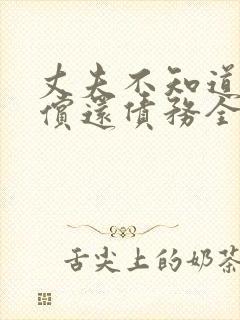 丈夫不知道
償還債務全
舌尖上的奶茶